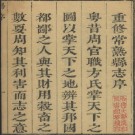 重修常熟縣志序
粤昔周官職方氏掌天下之
圖以掌天下之地辨其邦國
都鄙之人與其財用穀畜之
數要周知其利害而志之意